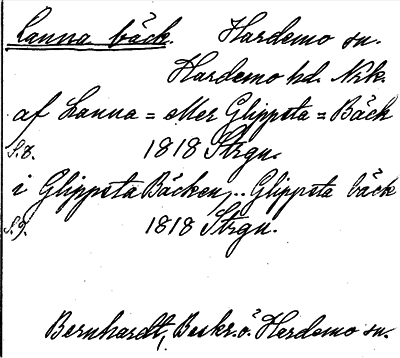 Lanna bäck. Hardemo sn.
Hardemo hd. Nrk.
af Lanna = eller Glippsta = Bäck
S.8. 1818 Strgn.
i Glippsta Bäcken,.. Glippsta bäck
S.9. 1818 Strgn.
Bernhardt, Beskr. ö. Hardemo sn.